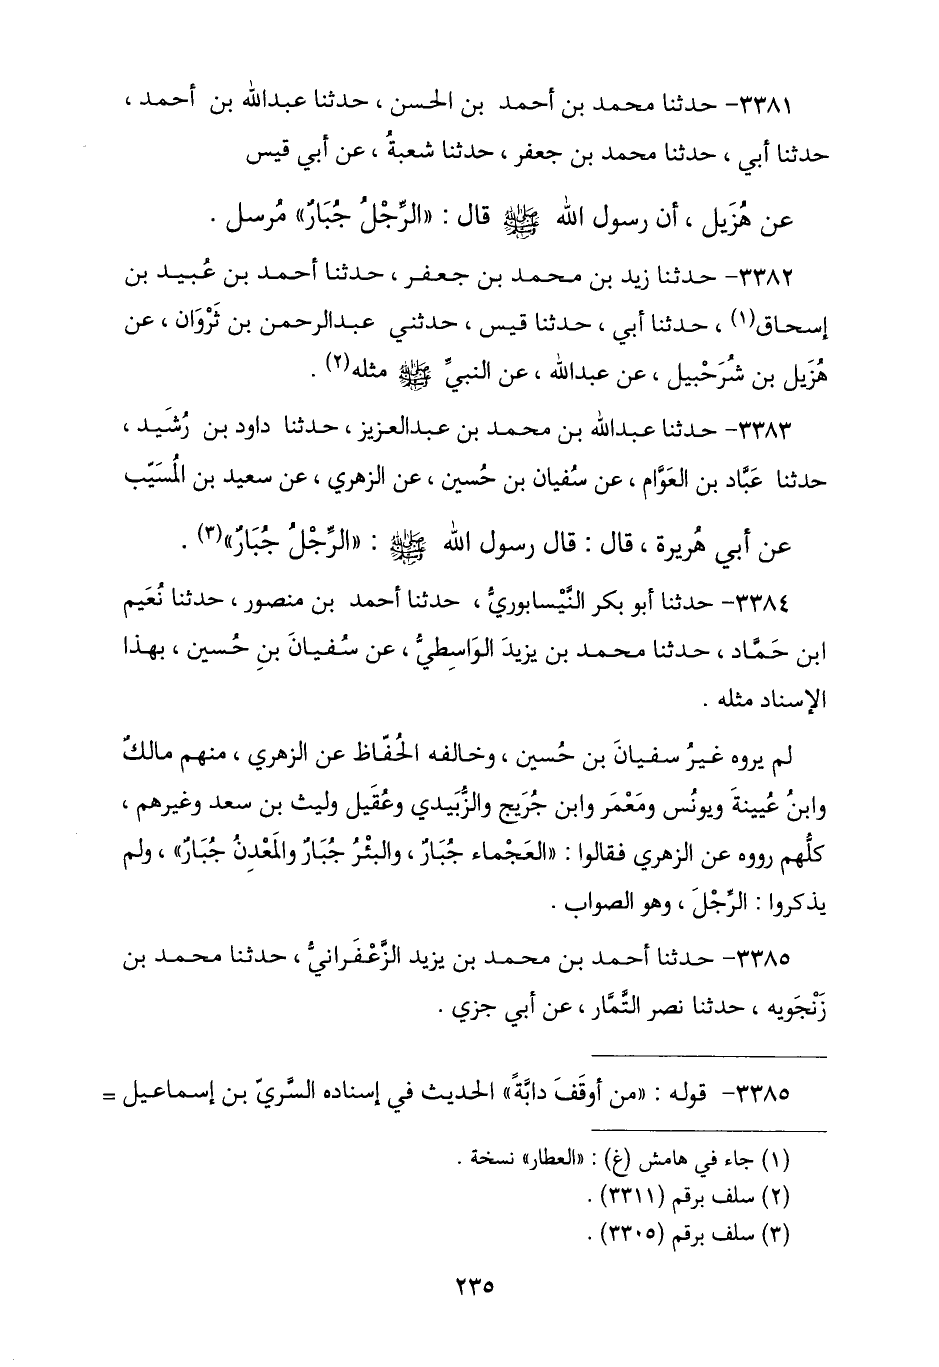 ٣٣٨١- حدثنا محمد بن أحمد بن الحسن ، حدثنا عبدالله بن أحمد ،
حدثنا أبي ، حدثنا محمد بن جعفر ، حدثنا شعبةُ ، عن أبي قيس
عن هُزَيل ، أن رسول الله ﷺ قال : «الرِّجْلُ جُبَارٌ» مُرسل .
٣٣٨٢- حدثنا زيد بن محمد بن جعفر ، حدثنا أحمد بن عُبيد بن
إسحاق(١) ، حدثنا أبي ، حدثنا قيس ، حدثني عبدالرحمن بن ثَرْوَان ، عن
هُزَيل بن شُرَحْبيل ، عن عبدالله ، عن النبيِّ ﷺ مثله(٢) .
٣٣٨٣- حدثنا عبدالله بن محمد بن عبدالعزيز ، حدثنا داود بن رُشَيد ،
حدثنا عَبَّاد بن العَوَّام ، عن سُفيان بن حُسين ، عن الزهري ، عن سعيد بن المُسَيّب
عن أبي هُريرة ، قال : قال رسول الله ﷺ : «الرِّجْلُ جُبَارٌ»(٣) .
٣٣٨٤- حدثنا أبو بكر النَّيْسابوريُّ ، حدثنا أحمد بن منصور ، حدثنا نُعَيم
ابن حَمَّاد ، حدثنا محمد بن يزيدَ الوَاسِطيُّ ، عن سُفيانَ بنِ حُسين ، بهذا
الإسناد مثله .
لم يروه غيرُ سفيانَ بن حُسين ، وخالفه الحُفّاظ عن الزهري ، منهم مالكٌ
وابنُ عُيينةَ ويونُس ومَعْمَر وابن جُرَيج والزُّبَيدي وعُقَيل وليث بن سعد وغيرهم ،
كلُّهم رووه عن الزهري فقالوا : «العَجْماء جُبَارٌ ، والبئْرُ جُبَارٌ والمَعْدِنُ جُبَارٌ» ، ولم
يذكروا : الرِّجْلَ ، وهو الصواب .
٣٣٨٥- حدثنا أحمد بن محمد بن يزيد الزَّعْفَرانيُّ ، حدثنا محمد بن
زَنْجَويه ، حدثنا نصر التَّمَّار ، عن أبي جزي .
٣٣٨٥- قوله : «من أوقَفَ دابَّةً» الحديث في إسناده السَّريّ بن إسماعيل =
(١) جاء في هامش (غ) : «العطار» نسخة .
(٢) سلف برقم (٣٣١١) .
(٣) سلف برقم (٣٣٠٥) .
٢٣٥